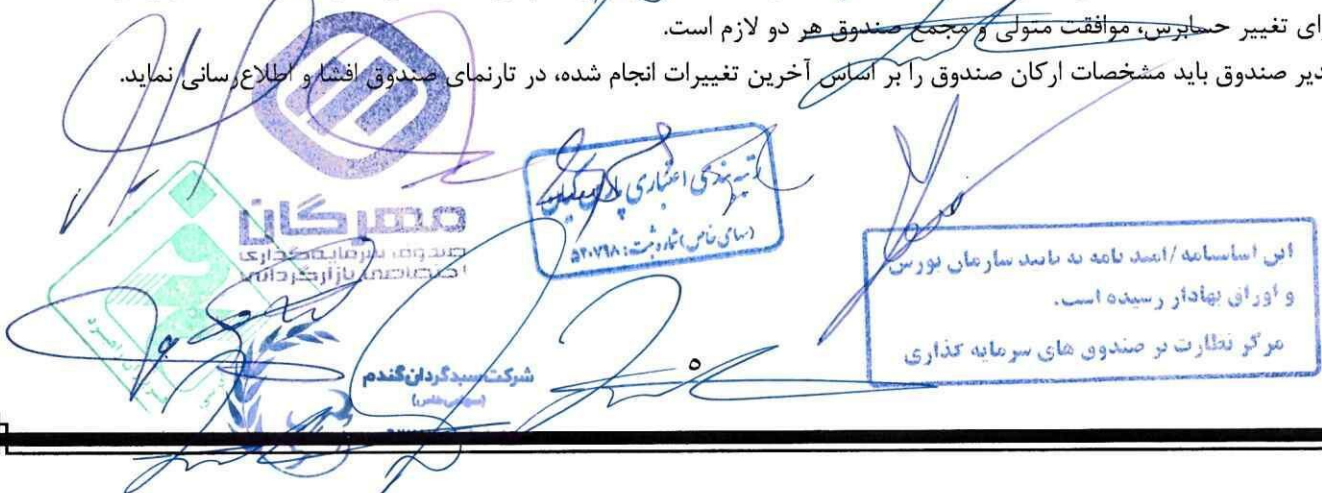 ای تغییر حسابرس، موافقت متولی و مجمع صندوق هر دو لازم است.
دیر صندوق باید مشخصات ارکان صندوق را بر اساس آخرین تغییرات انجام شده، در تارنمای صندوق افشا و اطلاع‌رسانی نماید.
مهرگان
صندوق سرمایه‌گذاری
اختصاصی بازارگردانی
رتبه‌بندی اعتباری پارس کیان
(سهامی خاص) شماره ثبت: ۵۲۰۷۹۸
این اساسنامه / امید نامه به تایید سازمان بورس
و اوراق بهادار رسیده است.
مرکز نظارت بر صندوق های سرمایه گذاری
شرکت سبدگردان گندم
(سهامی خاص)
۵